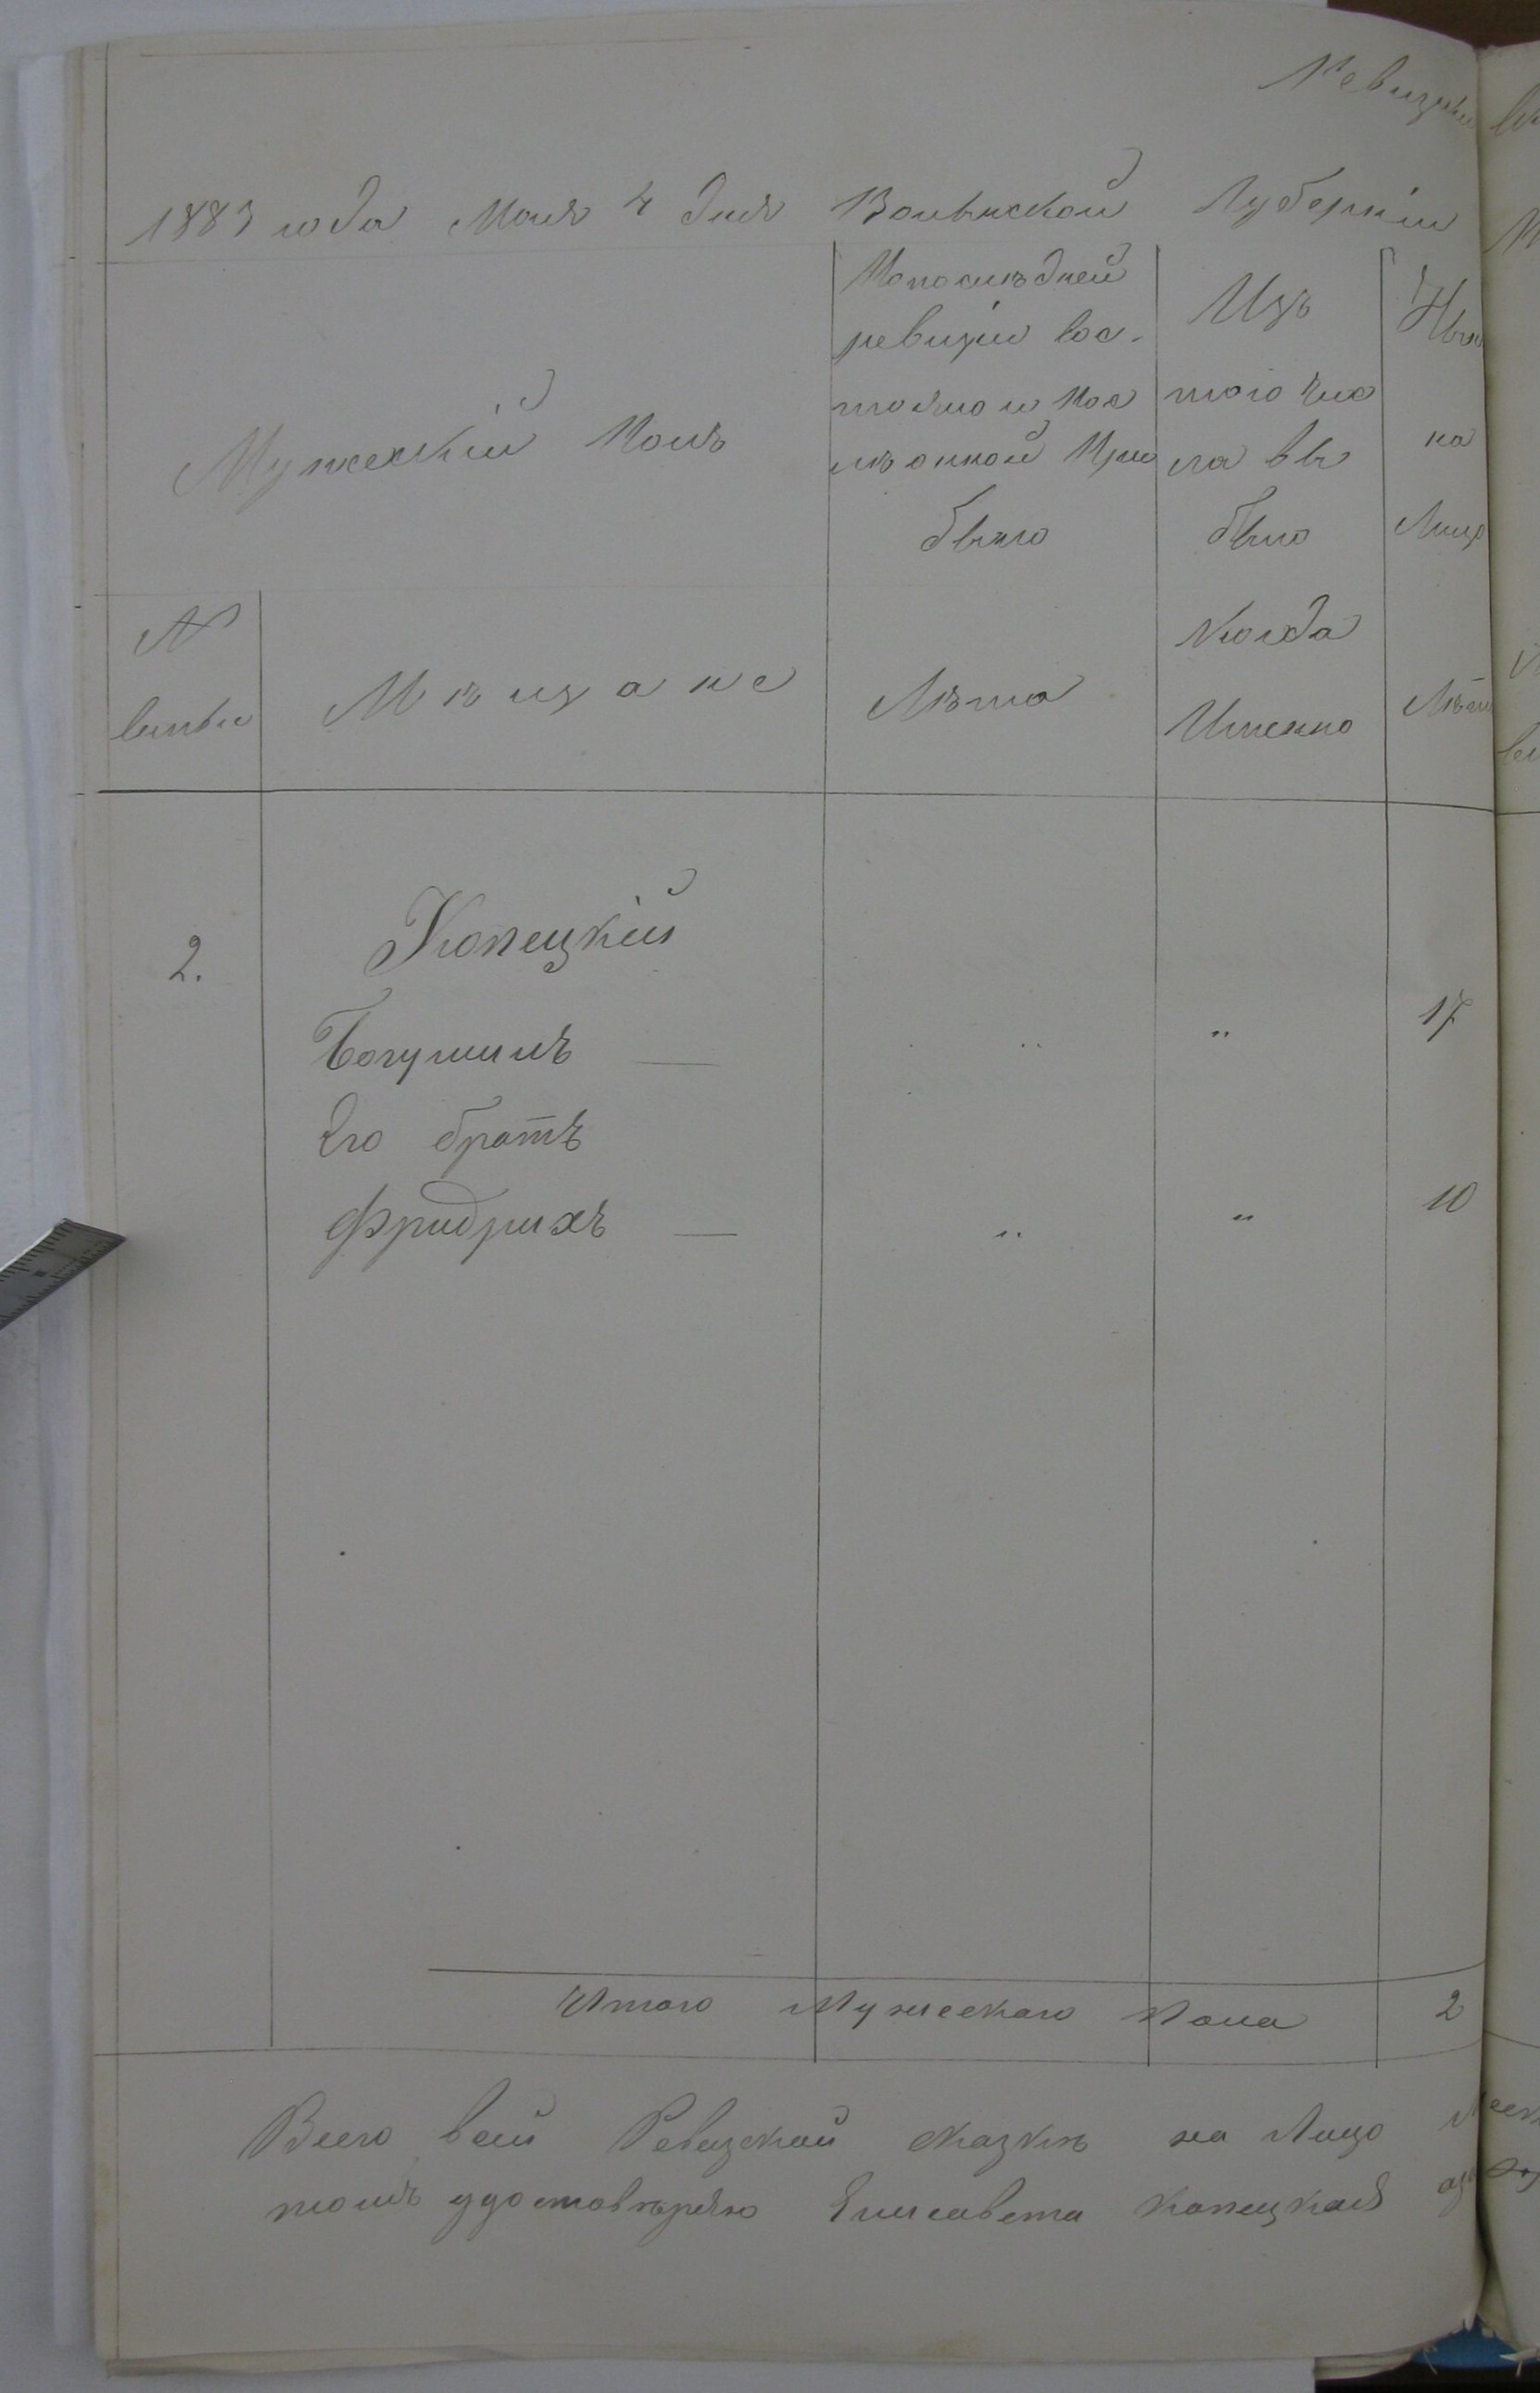 Ревизска
1883 года Мая 4 дня Волынской Губернiи
Мужескiй Полъ
Попослѣдней
ревизiи сос-
тояло и пос
лѣ онной При
было
Изъ
того чис
ла вы
было
Ны
на
Лиц
№
семьи
Мѣщане
Лѣта
Когда
Именно
Лѣт
2.
Копецкiй
Богумилъ — " " 17
Его братъ
Фридрихъ — " " 10
Итого Мужескаго Пола 2
Всего всей Ревизской сказкѣ на Лицо
томъ удостовѣряю Елисавета Копецкая